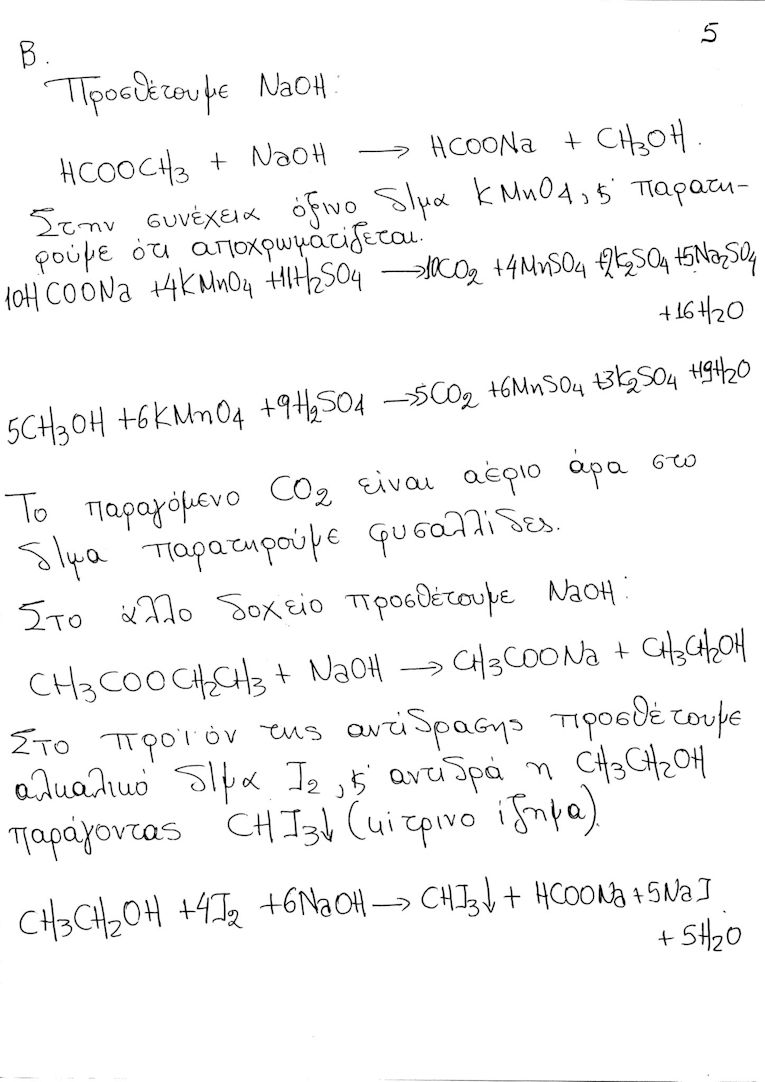 5
Β.
Προσθέτουμε NaOH:
HCOOCH3 + NaOH → HCOONa + CH3OH.
Στην συνέχεια όξινο δ/μα KMnO4, ϗ παρατη-
ρούμε ότι αποχρωματίζεται.
10HCOONa +4KMnO4 +11H2SO4 →10CO2 +4MnSO4 +2K2SO4 +5Na2SO4
+16H2O
5CH3OH +6KMnO4 +9H2SO4 →5CO2 +6MnSO4 +3K2SO4 +19H2O
Το παραγόμενο CO2 είναι αέριο άρα στο
δ/μα παρατηρούμε φυσαλλίδες.
Στο άλλο δοχείο προσθέτουμε NaOH:
CH3COOCH2CH3 + NaOH → CH3COONa + CH3CH2OH
Στο προϊόν της αντίδρασης προσθέτουμε
αλκαλικό δ/μα I2, ϗ αντιδρά η CH3CH2OH
παράγοντας CHI3↓ (κίτρινο ίζημα).
CH3CH2OH +4I2 +6NaOH → CHI3↓ + HCOONa +5NaI
+ 5H2O